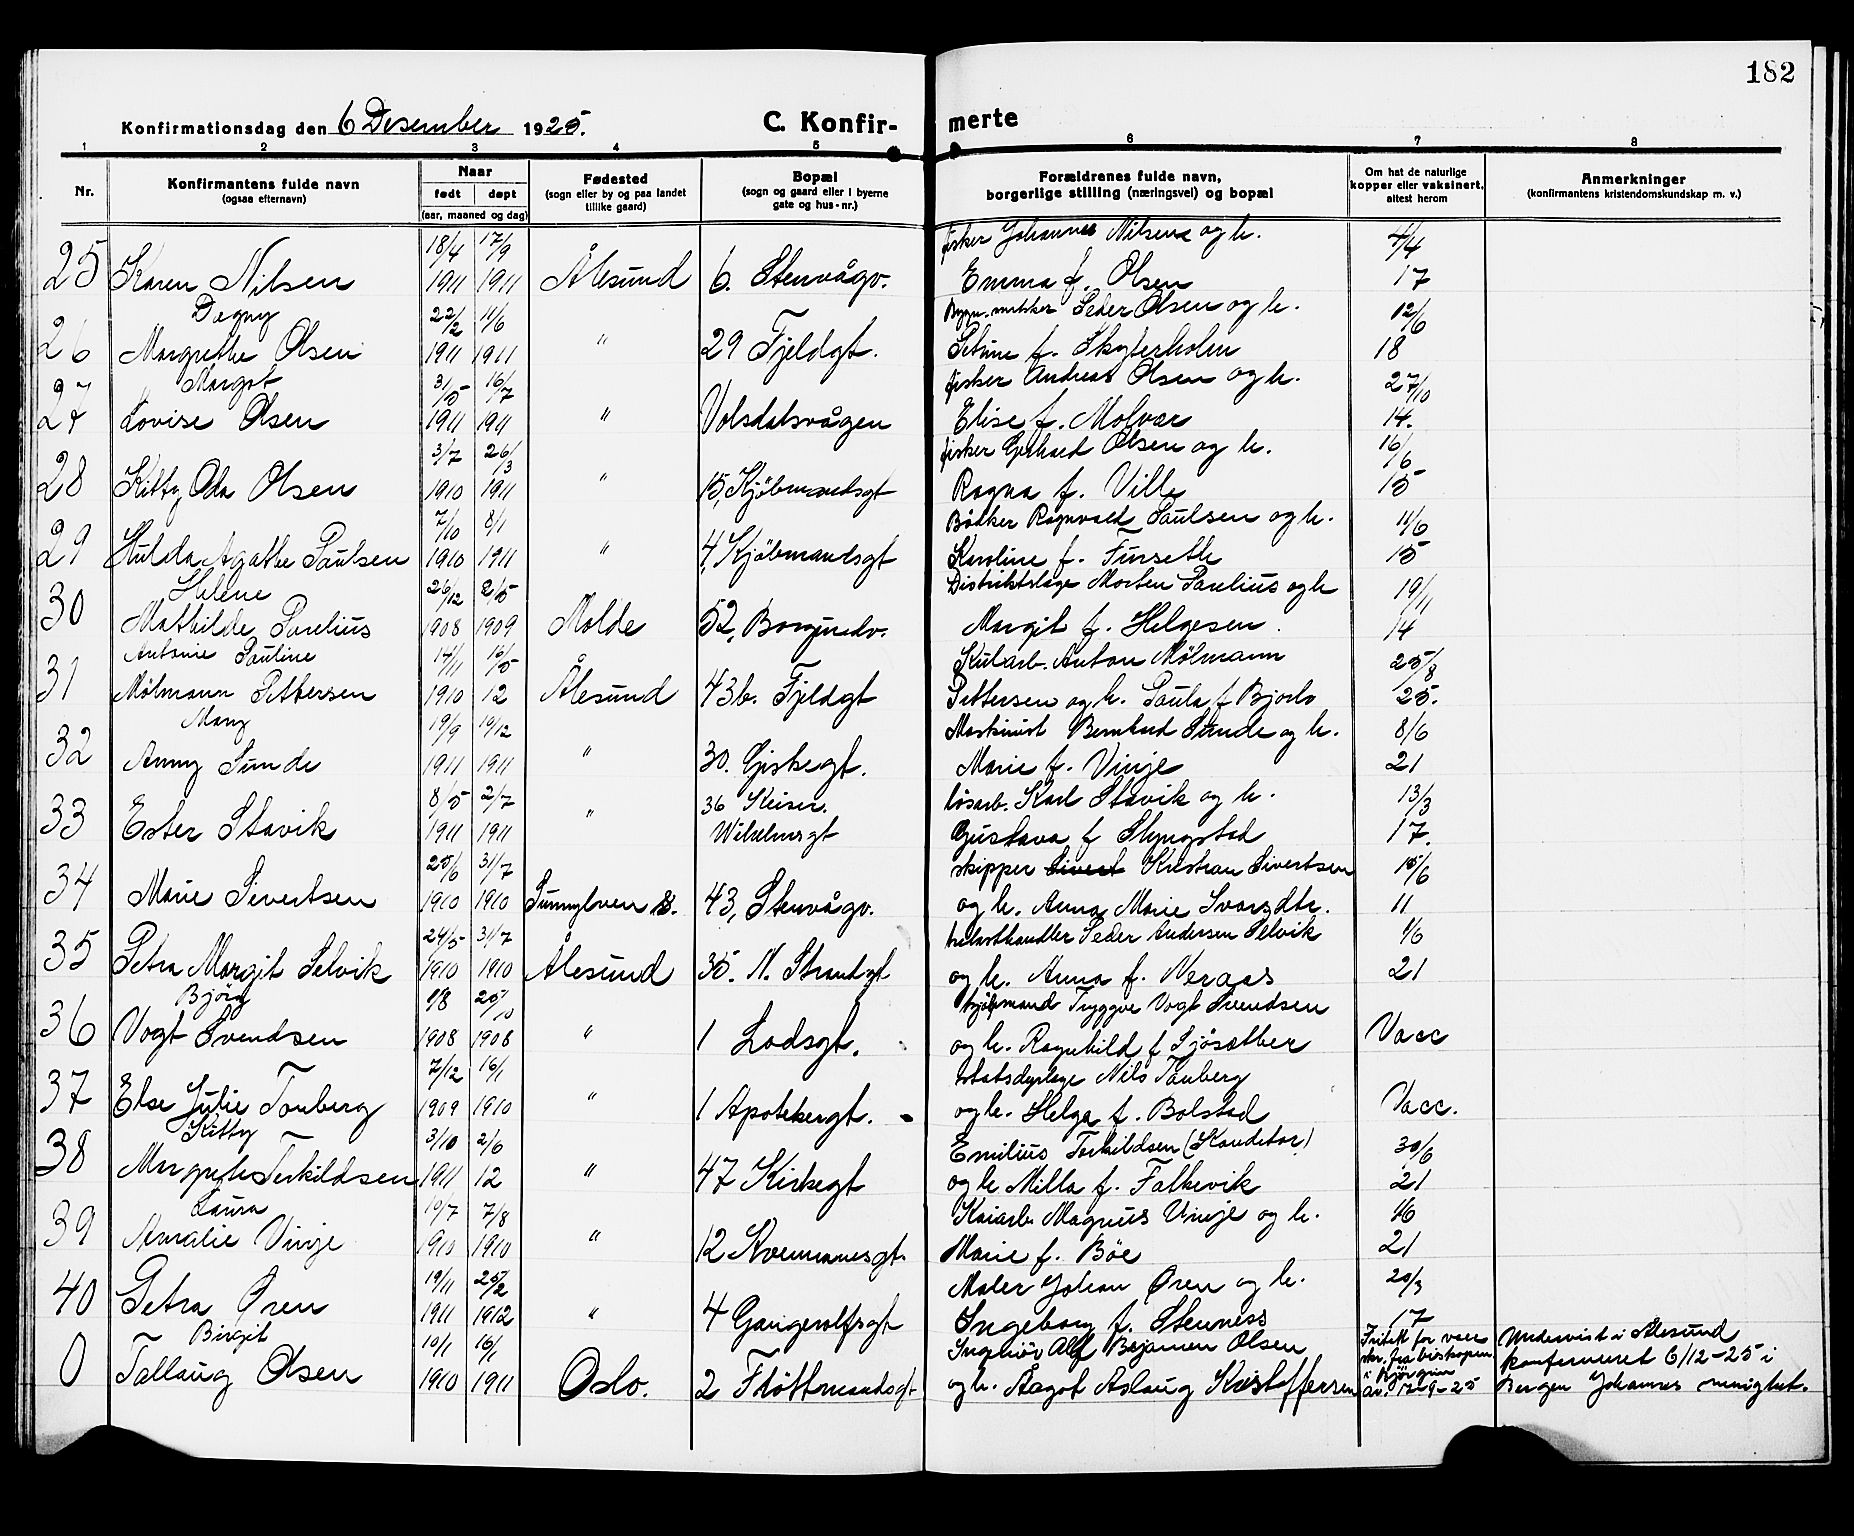 182
Konfirmationsdag den 6 Desember 1925.
C. Konfirmerte
1 2 3 4 5 6 7 8
Nr.
Konfirmantens fulde navn
(ogsaa efternavn)
Naar
født døpt
(aar, maaned og dag)
Fødested
(sogn eller by og paa landet
tillike gaard)
Bopæl
(sogn og gaard eller i byerne
gate og hus-nr.)
Forældrenes fulde navn,
borgerlige stilling (næringsvei) og bopæl
Om hat de naturlige
kopper eller vaksinert,
attest herom
Anmerkninger
(konfirmantens kristendomskundskap m. v.)
18/4 17/9 fisker Johannes Nilsen og h. 4/4
25 Karen Nilsen 1911 1911 Ålesund 6. Stenvågv. Emma f. Olsen 17
Dagny 22/2 11/6 Peder Olsen og h. 12/6
26 Margrethe Olsen 1911 1911 " 29 Fjeldgt. Petrine f. Skyterholm 18
Margot 31/5 16/7 fisker Andreas Olsen og h. 27/10
27 Lovise Olsen 1911 1911 " Volsdalsvågen Elise f. Molvær 14.
3/7 26/3 fisker Gerhard Olsen og h. 16/6
28 Kitty Oda Olsen 1910 1911 " 15, Kjøbmandsgt Ragna f. Ville 15
7/10 8/1 Bødker Ragnvald Paulsen og h. 11/6
29 Hulda Agathe Paulsen 1910 1911 " 4, Kjøbmandsgt Karoline f. Furseth 15
Helene 26/12 2/5 Distriktslæge Morten Parelius og h 19/11
30 Mathilde Parelius 1908 1909 Molde 52, Borgundv. Margit f. Helgesen. 14
Antonie Pauline 14/11 16/5 Kularb. Anton Mølmann 25/8
31 Mølmann Pettersen 1910 12 Ålesund 43b. Fjeldgt Pettersen og h. Paula f Bjorlo 25.
Mary 19/9 19/12 Maskinist Bernhard Sunde og h. 8/6
32 Anny Sunde 1911 1911 " 30. Giskegt. Marie f. Vinje 21
8/5 2/7 36 Keiser. løsarb. Karl Stavik og h. 13/3
33 Ester Stavik 1911 1911 " Wilhelmsgt Gustava f Slyngstad 17.
25/6 31/7 skipper Sivert Kristian Sivertsen 15/6
34 Marie Sivertsen 1910 1910 Sunnylven s. 43, Stenvågv. og h. Anna Marie Ivarsdtr. 11
24/5 31/7 trelasthandler Peder Andersen Selvik 1/6
35 Petra Margit Selvik 1910 1910 Ålesund 35. N. Strandgt og h. Anna f. Neraas 21
Bjørg 9/8 25/10 kjøbmand Tryggve Vogt Svendsen
36 Vogt Svendsen 1908 1908 " 1 Lodsgt. og h. Ragnhild f Sjøsæther Vacc
7/12 16/1 Statsdyrlæge Nils Tonberg
37 Else Julie Tonberg 1909 1910 " 1 Apothekergt. og h. Helga f. Bolstad Vacc.
Kitty 3/10 2/6 Emilius Torkildsen (Konditor) 30/6
38 Margrethe Torkildsen 1911 12 " 47 Kirkegt og h Milla f. Falkevik 21
Laura 19/7 7/8 Kaiarb. Magnus Vinje og h. 1/6
39 Amalie Vinje 1910 1910 " 12 Kvennanesgt. Marie f. Böe 21
19/11 25/2 Maler Johan Øren og h. 20/3
40 Petra Øren 1911 1912 " 4 Gangerolfsgt Ingeborg f. Stenness 17
Birgit 10/1 16/1 Ingeniør Alf Benjamin Olsen Fritat for vacc Undervist i Ålesund
skr. fra biskopen konfirmeret 6/12-25 i
0 Tollaug Olsen 1910 1911 Oslo. 2 Fløttmandsgt og h. Aagot Aslaug Kristoffersen i Bjørgvin av. 12-9-25 Bergen Johannes menighet.